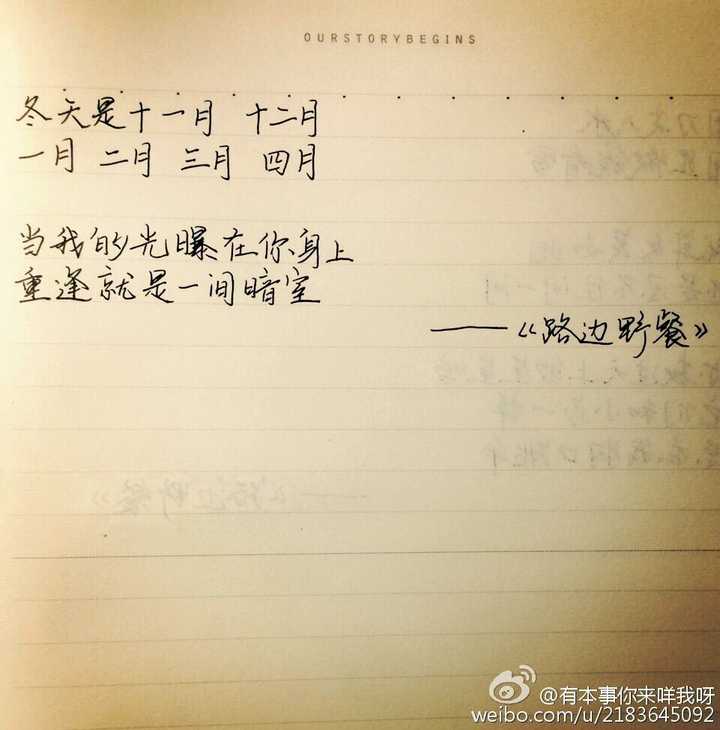 OURSTORYBEGINS
冬天是十一月 十二月
一月 二月 三月 四月
当我的光曝在你身上
重逢就是一间暗室
——《路边野餐》
@有本事你来咩我呀
weibo.com/u/2183645092